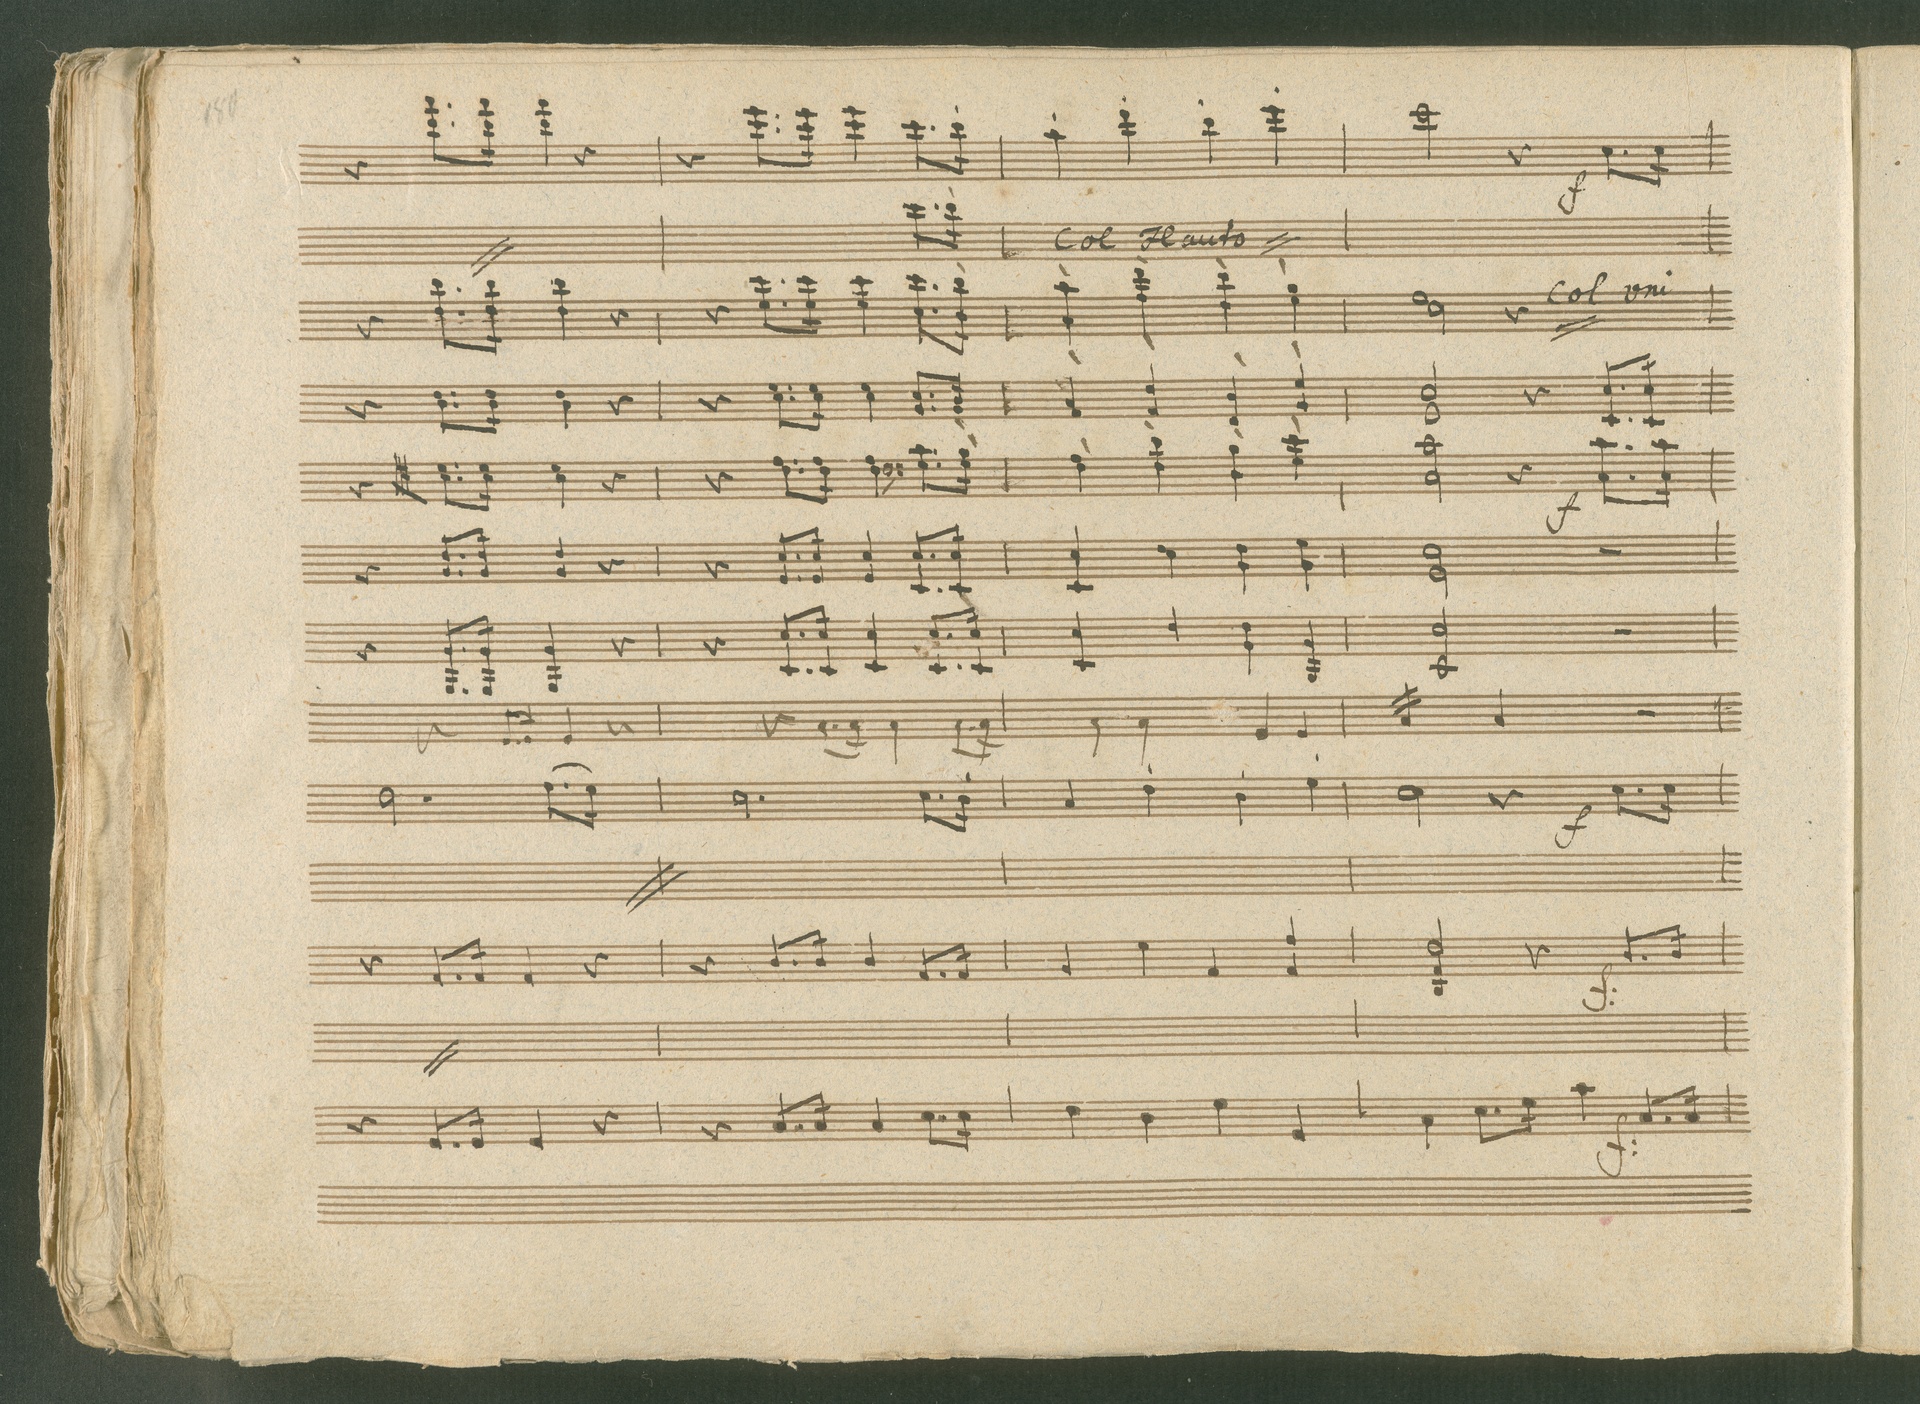 180
f
Col Flauto
Col vni
f
f
f:
f: